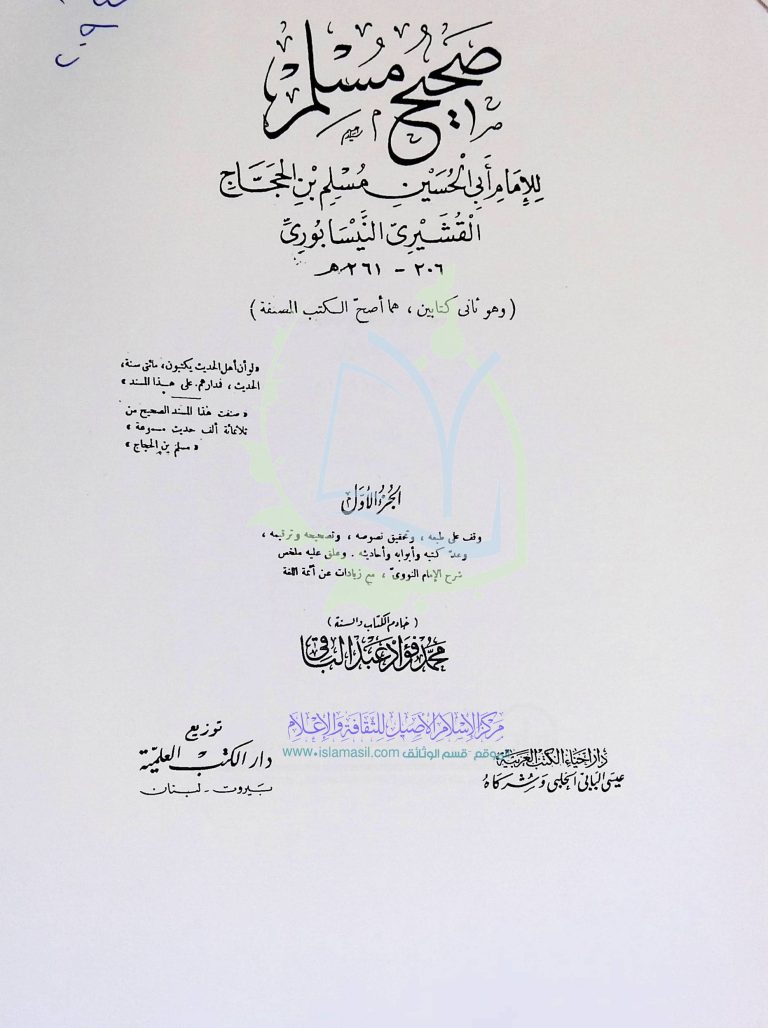 صَحِيحُ مُسْلِم
لِلإِمَامِ أَبِي الْحُسَيْنِ مُسْلِمِ بْنِ الْحَجَّاجِ
الْقُشَيْرِىِّ النَّيْسَابُورِىِّ
٢٠٦ - ٢٦١ هـ
( وهو ثانى كتابين ، هما أصحّ الكتب المصنفة )
« لو أن أهل الحديث يكتبون ، مائتى سنة ،
الحديث ، فدارهم على هذا المسند »
« صنفت هذا المسند الصحيح من
ثلاثمائة ألف حديث مسموعة »
« مسلم بن الحجاج »
الجُزءُ الأوّل
وقف على طبعه ، وتحقيق نصوصه ، وتصحيحه وترقيمه ،
وعدّ كتبه وأبوابه وأحاديثه . وعلق عليه ملخص
شرح الإمام النووىّ ، مع زيادات عن أئمة اللغة
( خادم الكتاب والسنة )
محمّد فؤاد عبد الباقى
مركز الإسلام الأصيل للثقافة والإعلام
الموقع - قسم الوثائق www.islamasil.com
توزيع
دار الكتب العلميّة
بَيروت - لبنان
دار إحياء الكتب العربية
عيسى البابى الحلبى وشركاه